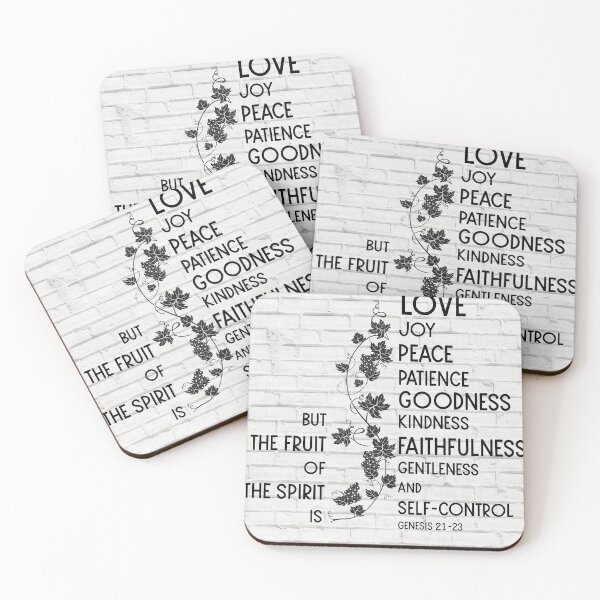 LOVE
JOY
PEACE
PATIENCE
GOODNESS
KINDNESS
BUT
LOVE
JOY
PEACE
PATIENCE
GOODNESS
KINDNESS
FAITHFULNESS
GENTLENESS
CONTROL
BUT
THE FRUIT
OF
LOVE
JOY
PEACE
PATIENCE
GOODNESS
KINDNESS
FAITHFULNESS
AND
BUT
THE FRUIT
OF
THE SPIRIT
IS
LOVE
JOY
PEACE
PATIENCE
GOODNESS
KINDNESS
FAITHFULNESS
GENTLENESS
AND
SELF-CONTROL
GENESIS 21-23
BUT
THE FRUIT
OF
THE SPIRIT
IS